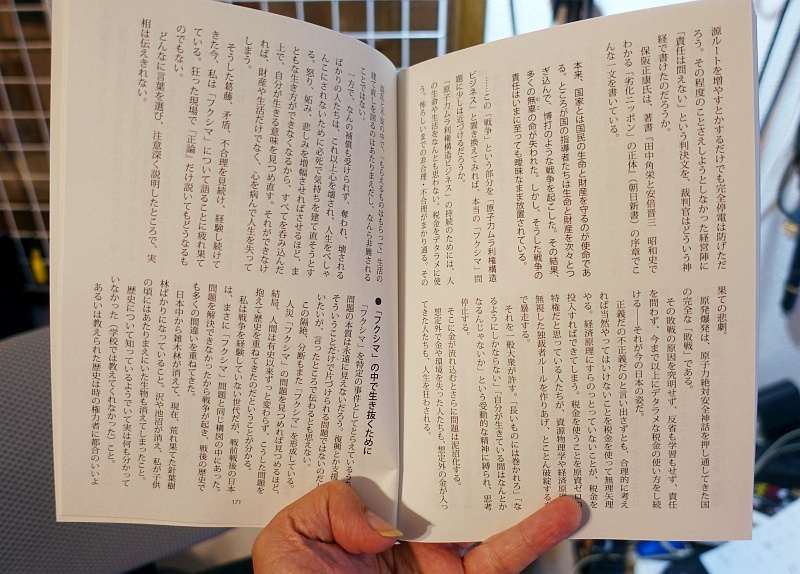 源ルートを増やすとかするだけでも完全停電は防げただ
ろう。その程度のことさえしようとしなかった経営陣に
「責任は問えない」という判決文を、裁判官はどういう神
経で書けたのだろうか。
保阪正康氏は、著書『田中角栄と安倍晋三 昭和史で
わかる「劣化ニッポン」の正体』(朝日新書)の序章でこ
んな一文を書いている。
本来、国家とは国民の生命と財産を守るのが使命であ
る。ところが国の指導者たちは生命と財産を次々とつ
ぎ込んで、博打のような戦争を起こした。その結果、
多くの無辜の命が失われた。しかし、そうした戦争の
責任はいまに至っても曖昧なまま放置されている。
……この「戦争」という部分を「原子力ムラ利権構造
ビジネス」と置き換えてみれば、本当の「フクシマ」問
題に少しは近づけるだろうか。
「原子力ムラ利権構造ビジネス」の持続のためには、人
の生命や生活をなんとも思わない。税金をデタラメに使
う。怖ろしいまでの非合理・不合理がまかり通る。その
果ての悲劇。
原発爆発は、原子力絶対安全神話を押し通してきた国
の完全な「敗戦」である。
その敗戦の原因を究明せず、反省も学習もせず、責任
を問わず、今まで以上にデタラメな税金の使い方をし続
ける――それが今の日本の姿だ。
正義だの不正義だのと言い出さずとも、合理的に考え
れば当然やってはいけないことを税金を使って無理矢理
やる。経済原理にすらのっとっていないことが、税金を
投入すればできてしまう。税金を使うことを原資ゼロの
特権だと思っている人たちが、資源物理学や経済原
無視した独裁者ルールを作りあげ、とことん破綻する
で暴走する。
それを一般大衆が許す。「長いものには巻かれろ」「な
るようにしかならない」「自分が生きている間はなんとか
なるんじゃないか」という受動的な精神に縛られ、思考
停止する。
そこに金が流れ込むとさらに問題は泥沼化する。
想定外で金や環境を失った人たちも、想定外の金が入っ
てきた人たちも、人生を狂わされる。
混乱と不安の中で、「もらえるものはもらって」生活の
建て直しを図るのはあたりまえだし、なんら非難される
ことではない。
一方で、なんの補償も受けられず、奪われ、壊される
ばかりの人たちは、これ以上心を壊され、人生をぺしゃ
んこにされないために必死で気持ちを建て直そうとす
る。怒り、妬み、悲しみを増幅させればさせるほど、ま
ともな生き方ができなくなるから、すべてを呑み込んだ
上で、自分が生きる意味を見つめ直す。それができなけ
れば、財産や生活だけでなく、心を病んで人生を失って
しまう。
そうした葛藤、矛盾、不合理を見続け、経験し続けて
きた今、私は「フクシマ」について語ることに疲れ果て
ている。狂った現場で「正論」だけ説いてもどうなるも
のでもない。
どんなに言葉を選び、注意深く説明したところで、実
相は伝えきれない。
●「フクシマ」の中で生き抜くために
「フクシマ」を特定の事件としてとらえている
問題の本質は永遠に見えないだろう。復興とか支援
そういうことだけで片づけられる問題ではないのだ
いたいが、言ったところで伝わるとも思えない。
この隔絶、分断もまた「フクシマ」を形成している。
人災「フクシマ」の問題を見つめれば見つめるほど、
結局、人間は有史以来ずっと変わらず、こうした問題を
抱えて歴史を重ねてきたのだということが分かる。
私は戦争を経験していない世代だが、戦前戦後の日本
は、まさに「フクシマ」問題と同じ構図の中にあった。
問題を解決できなかったから戦争が起き、戦後の歴史で
も多くの間違いを重ねてきた。
日本中から雑木林が消えて、現在、荒れ果てた針葉樹
林ばかりになっていること。沢や池沼が消え、私が子供
の頃にはあたりまえにいた生物も消えてしまったこと。
歴史について知っているようでいて実は何も分かって
いなかった(学校では教えてくれなかった)こと。
あるいは教えられた歴史は時の権力者に都合のいいよ
171